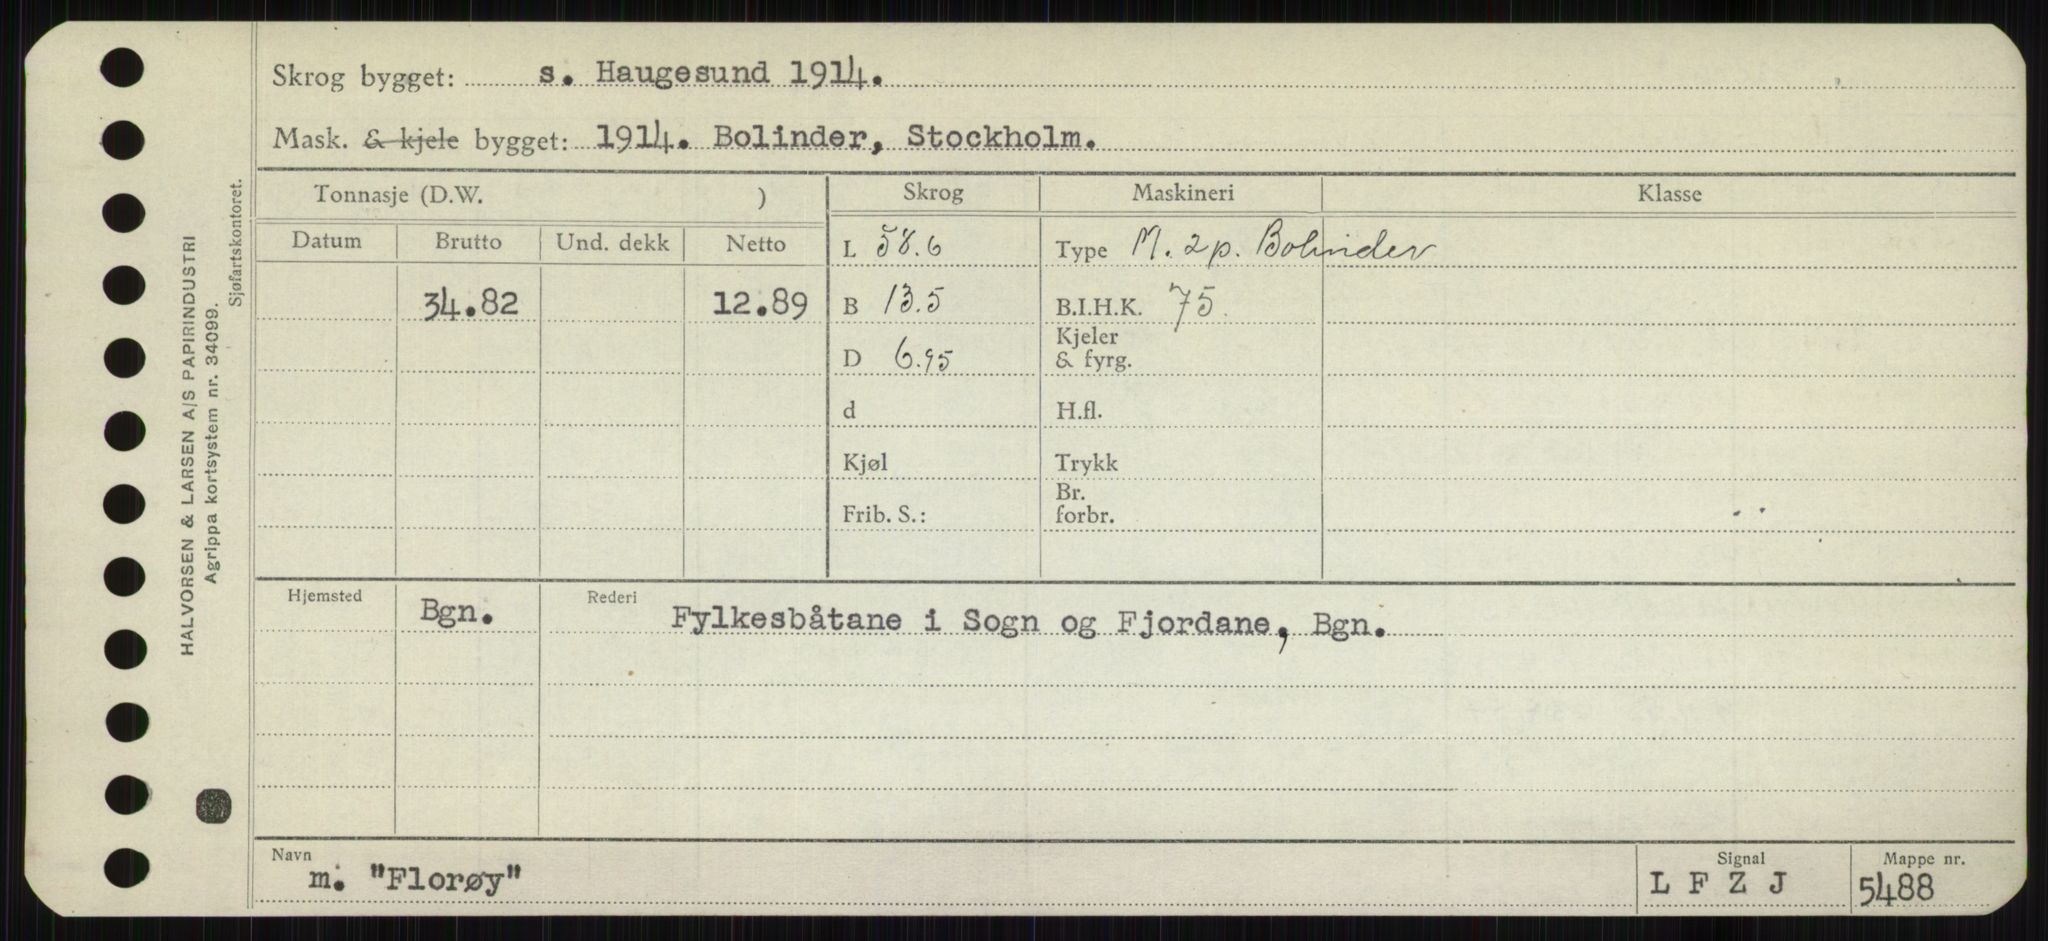 Skrog bygget: s. Haugesund 1914.
Mask. & kjele bygget: 1914. Bolinder, Stockholm.
Tonnasje (D.W. ) Skrog Maskineri Klasse
Datum Brutto Und. dekk Netto L 58.6 Type M. 2p. Bolinder
34.82 12.89 B 13.5 B.I.H.K. 75.
D 6.95 Kjeler & fyrg.
d H.fl.
Kjøl Trykk
Frib. S.: Br. forbr.
Hjemsted Bgn. Rederi Fylkesbåtane i Sogn og Fjordane, Bgn.
Navn m. "Florøy" Signal L F Z J Mappe nr. 5488
HALVORSEN & LARSEN A/S PAPIRINDUSTRI
Agrippa kortsystem nr. 34099.
Sjøfartskontoret.